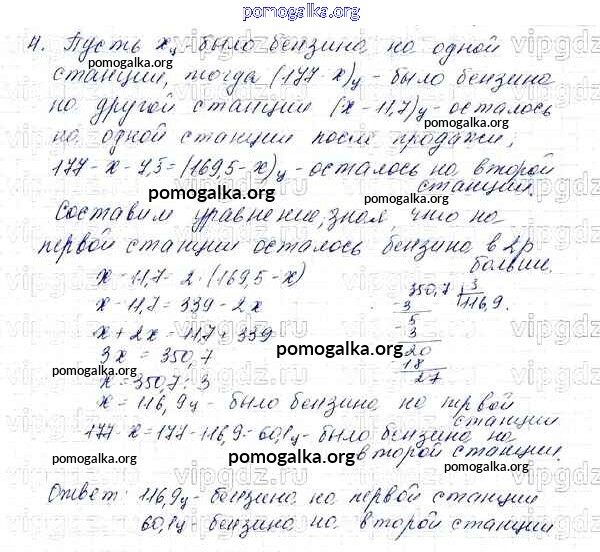 pomogalka.org
4. Пусть x ц - было бензина на одной
станции, тогда (177-x) ц - было бензина
на другой станции (x - 11,7) ц - осталось
на одной станции после продажи,
177 - x - 7,5 = (169,5 - x) ц - осталось на второй
станции.
pomogalka.org
pomogalka.org
Составим уравнение, зная что на
первой станции осталось бензина в 2 р
больше.
x - 11,7 = 2 · (169,5 - x)
x - 11,7 = 339 - 2x
x + 2x = 11,7 + 339
3x = 350,7
x = 350,7 : 3
350,7 3
3 116,9.
5
3
20
18
27
pomogalka.org
x = 116,9 ц - было бензина на первой
станции
177 - x = 177 - 116,9 = 60,1 ц - было бензина на
второй станции.
pomogalka.org
pomogalka.org
Ответ: 116,9 ц - бензина на первой станции
60,1 ц - бензина на второй станции
pomogalka.org